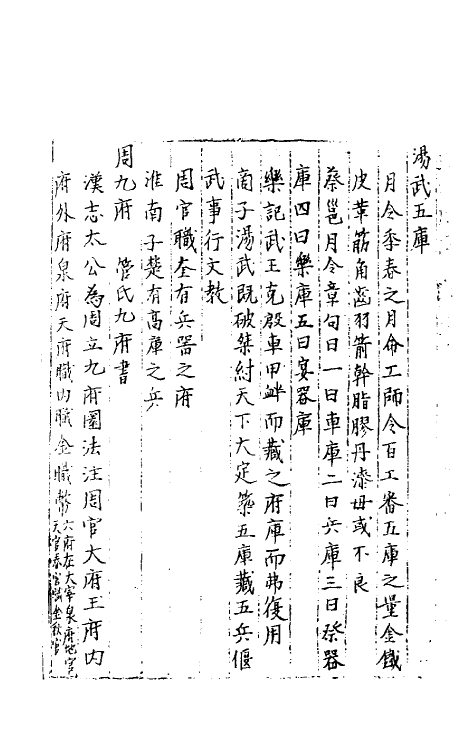 湯武五庫
月令季春之月命工師令百工審五庫之量金鐵
皮革筋角齒羽箭幹脂膠丹漆毋或不良
蔡邕月令章句曰一曰車庫二曰兵庫三曰祭器
庫四曰樂庫五曰宴器庫
樂記武王克殷車甲衅而藏之府庫而弗復用
商子湯武既破桀紂天下大定築五庫藏五兵偃
武事行文教
周官職金有兵器之府
淮南子楚有高庫之兵
周九府 管氏九府書
漢志太公為周立九府圜法注周官大府玉府內
府外府泉府天府職內職金職幣六府在大宰泉府地官
天官春官職金秋官